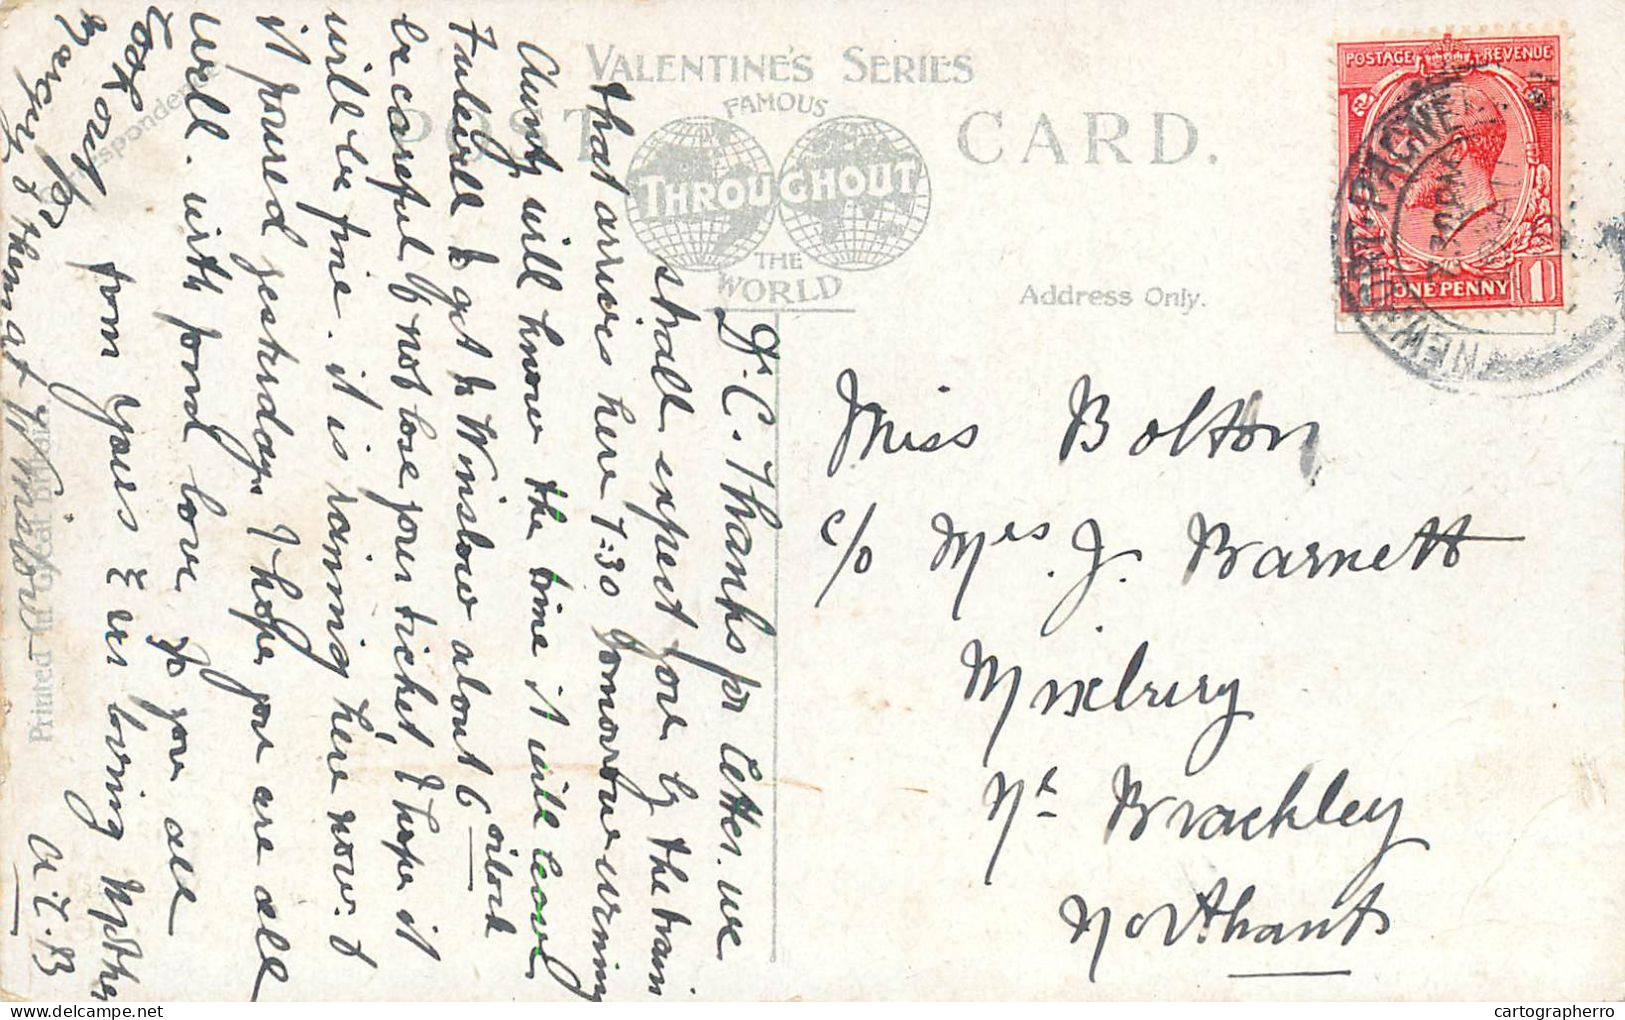 VALENTINE'S SERIES
FAMOUS
THROUGHOUT
THE
WORLD
POST CARD.
Address Only.
Correspondence
Printed in Great Britain
POSTAGE REVENUE
ONE PENNY
1
NEWPORT PAGNELL
Dr. C. Thanks for letter. we
shall expect you by the train
that arrives here 7:30 Tomorow evening
Aunty will know the time it will leave
Fulwell to get to Winslow about 6 oclock
be careful & not lose your ticket, I hope it
will be fine. it is raining here now. &
it poured yesterday. I hope you are all
well. with fond love to you all
from yours Ever loving Mother
A. E. B
look out
for
them at Winslow
Miss Bolton
c/o Mrs. J. Barnett
Mixbury
Nr Brackley
Northants
cartographerro
www.delcampe.net